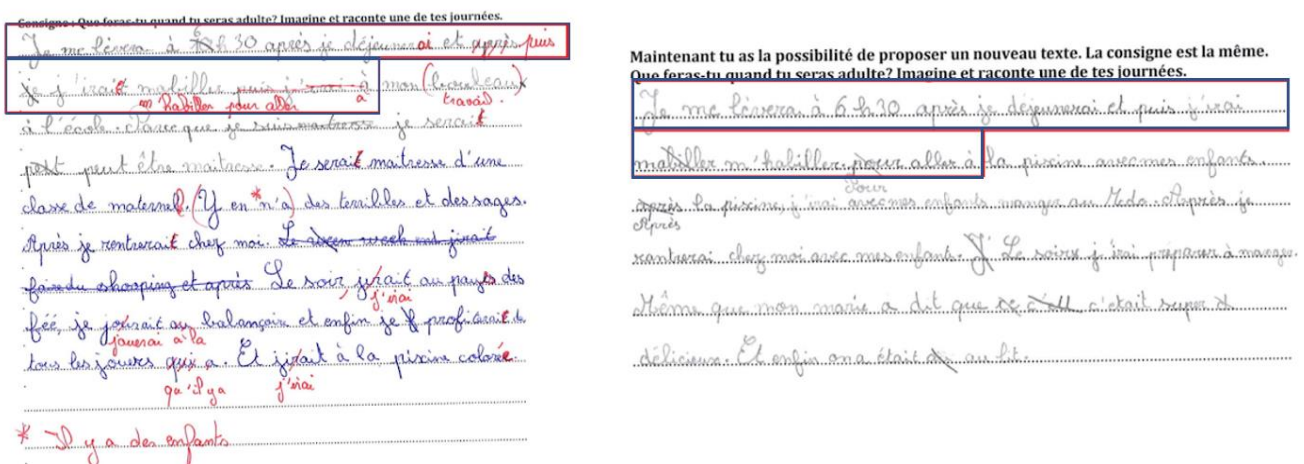 Consigne : Que feras-tu quand tu seras adulte? Imagine et raconte une de tes journées.
Je me lèvera à 6 h 30 après je déjeunerai et après puis
je j'irait mabiller puis j'irais à mon (beau beau)
m'habiller pour aller à travail.
à l'école. Parce que je suis maitresse je serait
peut être maitresse. Je serait maitresse d'une
classe de maternel. (Y en * n'a) des terribles et des sages.
Après je rentrerait chez moi. Le week end jirait
faire du shooping et après Le soir, jirait au pays des
j'irai
fée, je jourait au balançoir et enfin je profiterait de
jouerai à la
tous les jouers qui a. Et jirait à la piscine colorée.
qu'il y a j'irai
* Il y a des enfants
Maintenant tu as la possibilité de proposer un nouveau texte. La consigne est la même.
Que feras-tu quand tu seras adulte? Imagine et raconte une de tes journées.
Je me lèvera à 6 h 30 après je déjeunerai et puis j'irai
mabiller m'habiller pour aller à la piscine avec mes enfants.
Pour
après la piscine, j'irai avec mes enfants manger au Mcdo. Après je
Après
rantrerai chez moi avec mes enfants. J' Le soire j'irai préparer à manger.
Même que mon marie a dit que c'était super
délicieux. Et enfin on a était au lit.